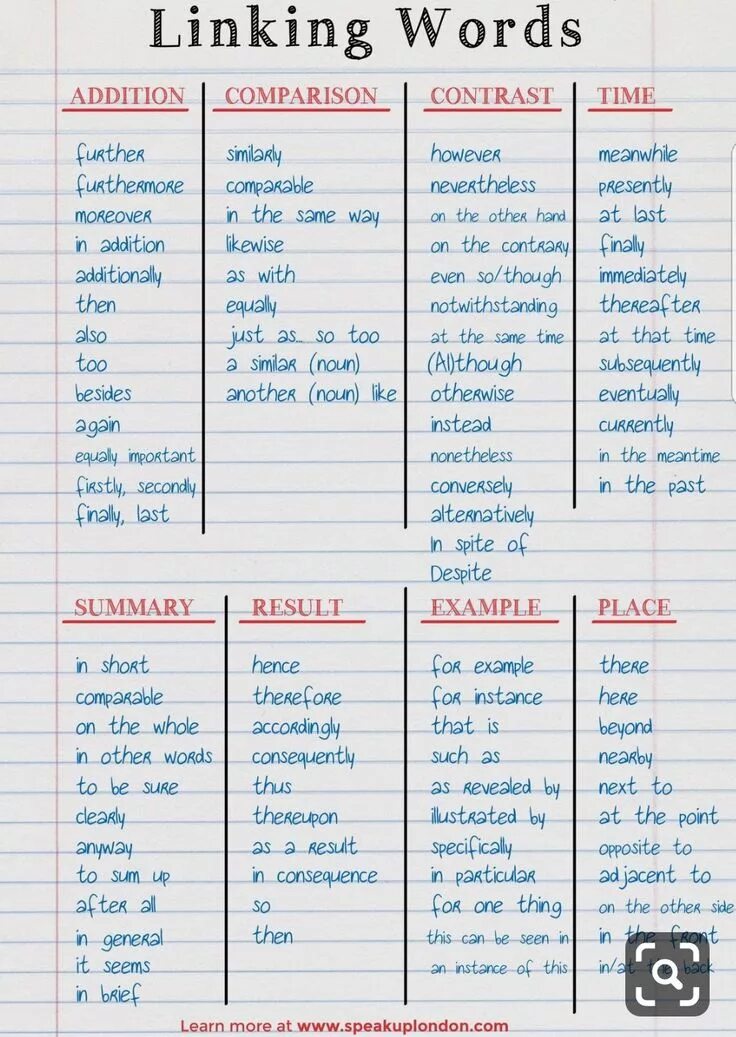 Linking Words
ADDITION
further
furthermore
moreover
in addition
additionally
then
also
too
besides
again
equally important
firstly, secondly
finally, last
COMPARISON
similarly
comparable
in the same way
likewise
as with
equally
just as... so too
a similar (noun)
another (noun) like
CONTRAST
however
nevertheless
on the other hand
on the contrary
even so/though
notwithstanding
at the same time
(Al)though
otherwise
instead
nonetheless
conversely
alternatively
In spite of
Despite
TIME
meanwhile
presently
at last
finally
immediately
thereafter
at that time
subsequently
eventually
currently
in the meantime
in the past
SUMMARY
in short
comparable
on the whole
in other words
to be sure
clearly
anyway
to sum up
after all
in general
it seems
in brief
RESULT
hence
therefore
accordingly
consequently
thus
thereupon
as a result
in consequence
so
then
EXAMPLE
for example
for instance
that is
such as
as revealed by
illustrated by
specifically
in particular
for one thing
this can be seen in
an instance of this
PLACE
there
here
beyond
nearby
next to
at the point
opposite to
adjacent to
on the other side
in the front
in/at the back
Learn more at www.speakuplondon.com